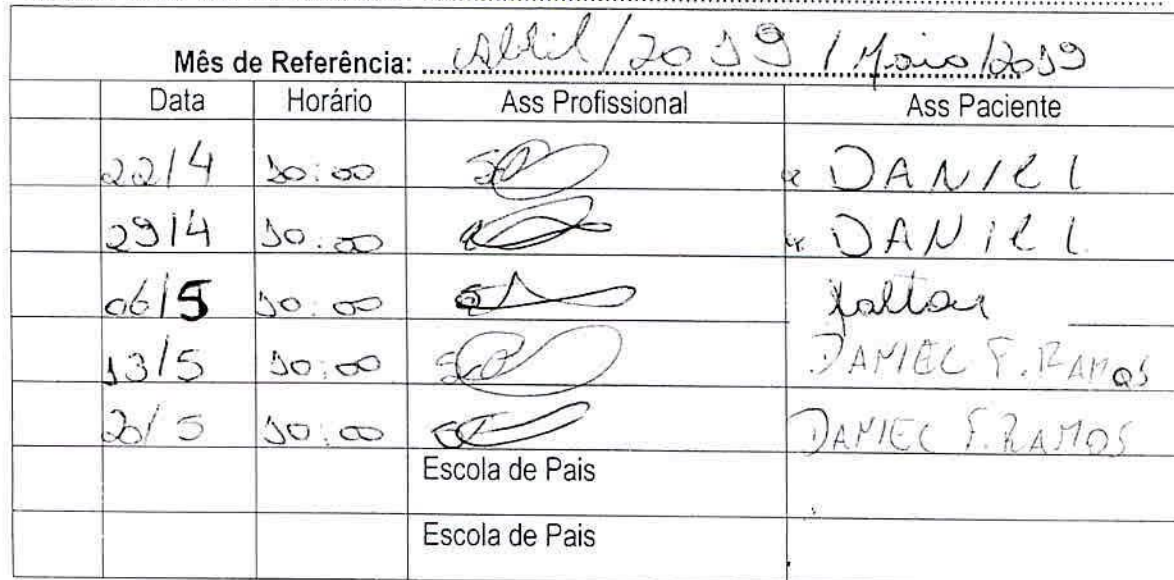 Mês de Referência: Abril/2019 / Maio/2019
Data Horário Ass Profissional Ass Paciente
22/4 10:00 DANIEL
29/4 10:00 DANIEL
06/5 10:00 faltou
13/5 10:00 DANIEL F. RAMOS
20/5 10:00 DANIEL F. RAMOS
Escola de Pais
Escola de Pais